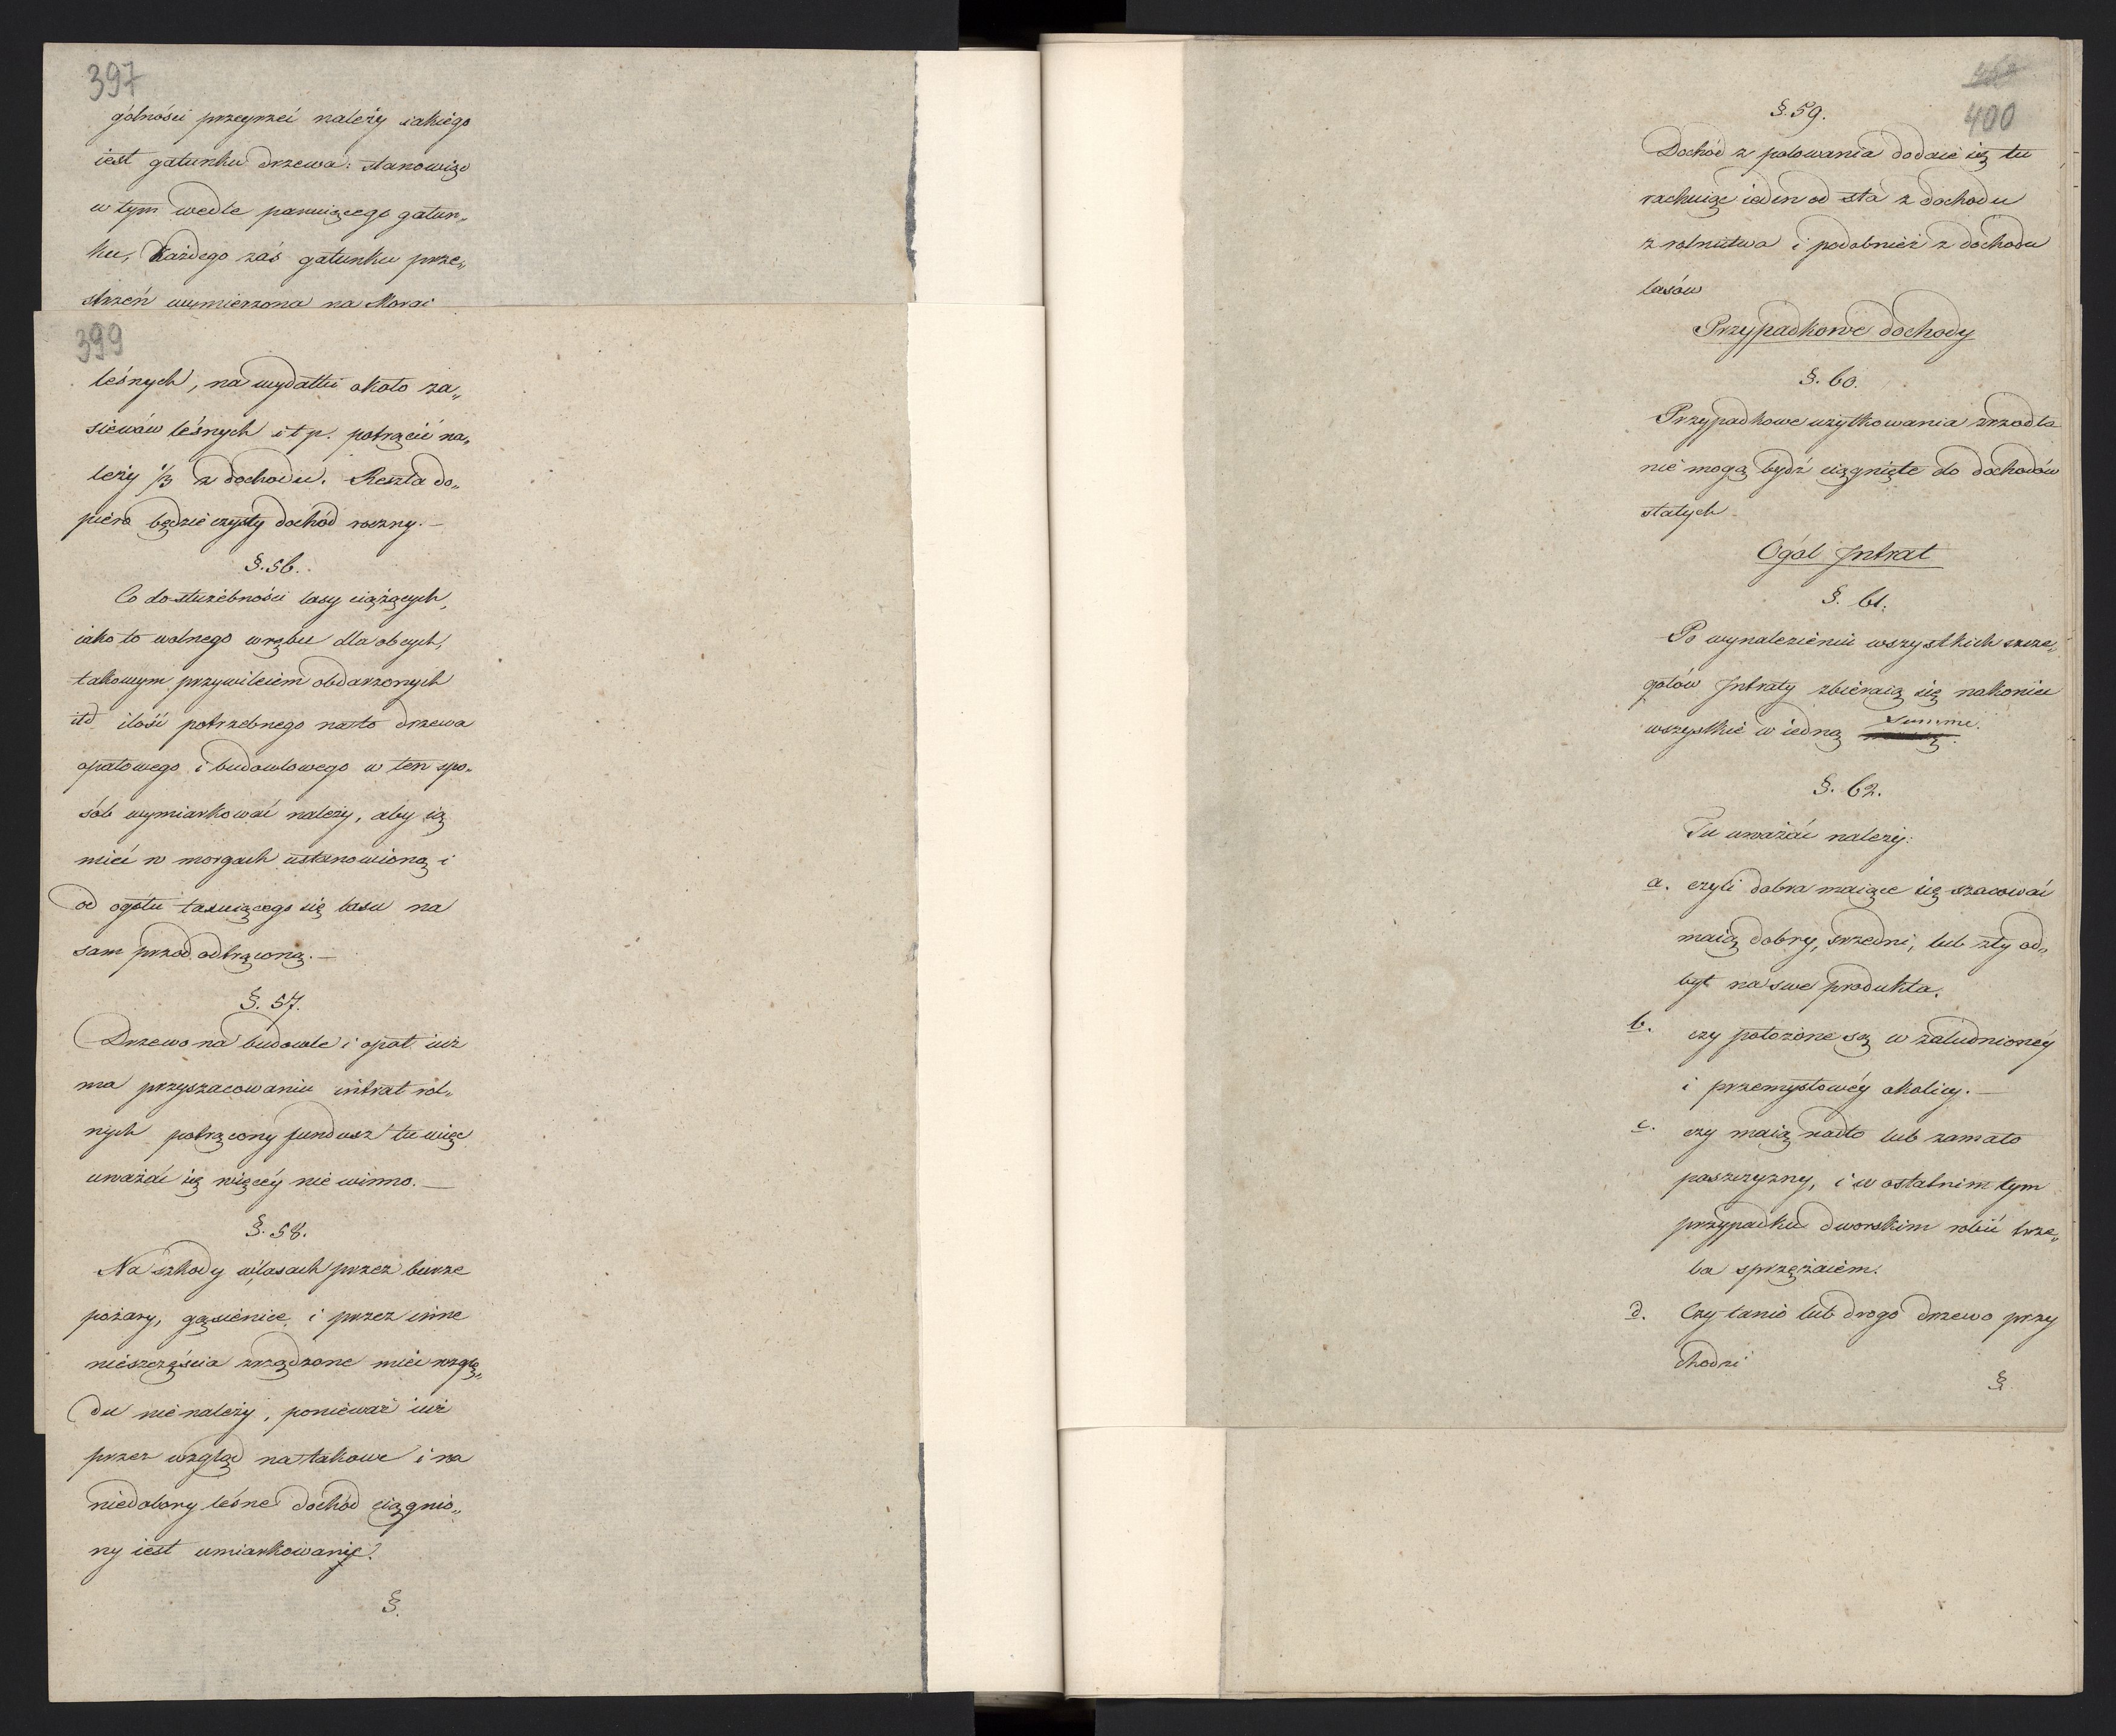 397
gólności przeyrzeć należy iakiego
iest gatunku drzewa: stanowiąc
w tym wedle panuiącego gatun„
ku, każdego zaś gatunku prze„
strzeń wymierzona na Morgi
399
leśnych, na wydatki około za„
siewów leśnych i t p. potrącić na„
leży 1/3 z dochodu. Reszta do„
piero będzie czysty dochód roczny.—
§. 56.
Co do służebności lasy ciążących,
iako to wolnego wrębu dla obcych,
takowym przywileiem obdarzonych
itd ilość potrzebnego na to drzewa
opałowego i budowlowego w ten spo„
sób wymiarkować należy, aby ią
mieć w morgach ustanowioną i
od ogółu taxuiącego się lasu na
sam przód odtrąconą.—
§. 57.
Drzewo na budowle i opał iuż
ma przyszacowaniu intrat rol„
nych potrącony fundusz tu więc
uważać się więcéy nie winno.—
§. 58.
Na szkody w lasach przez burze
pożary, gąsienice, i przez inne
nieszczęścia zrządzone mieć wzglę„
du nie należy, ponieważ iuż
przez wzgląd na takowe i na
niedobory leśne dochód ciągnio„
ny iest umiarkowanie.
§.
400
§. 59.
Dochód z polowania dodaie się tu
rachuiąc ieden od sta z dochodu
z rolnictwa i podobnież z dochodu
lasów
Przypadkowe dochody
§. 60.
Przypadkowe użytkowania zrzodła
nie mogą bydź ciągnięte do dochodów
stałych
Ogół Intrat
§. 61.
Po wynalezieniu wszystkich szcze„
gółów Intraty zbieraią się nakoniec
wszystkie w iedną Summe.
§. 62.
Tu uważać należy:
a. czyli dobra maiące się szacować
maią dobry, srzedni, lub zły od„
byt na swe produkta.
b. czy położone są w zaludnionéy
i przemysłowéy okolicy.—
c. czy maią nadto lub zamało
paszczyzny, i w ostatnim tym
przypadku dworskim robić trze„
ba sprzężaiem.
d. Czy tanio lub drogo drzewo przy
chodzi
§